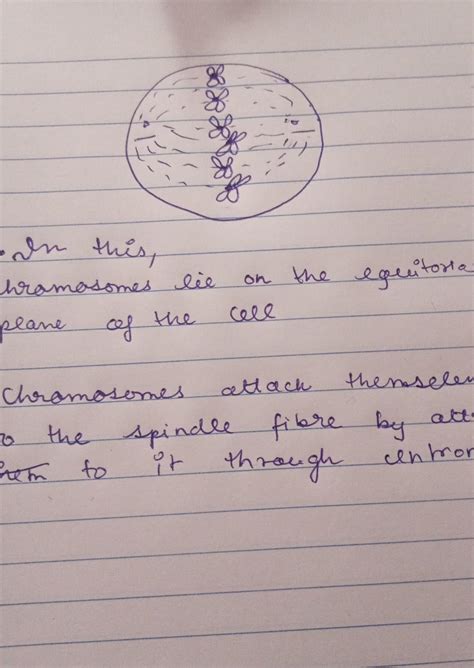 . In this,
hromosomes lie on the equitoria
plane of the cell
Chromosomes attack themselen
o the spindle fibre by att
them to it through centrom